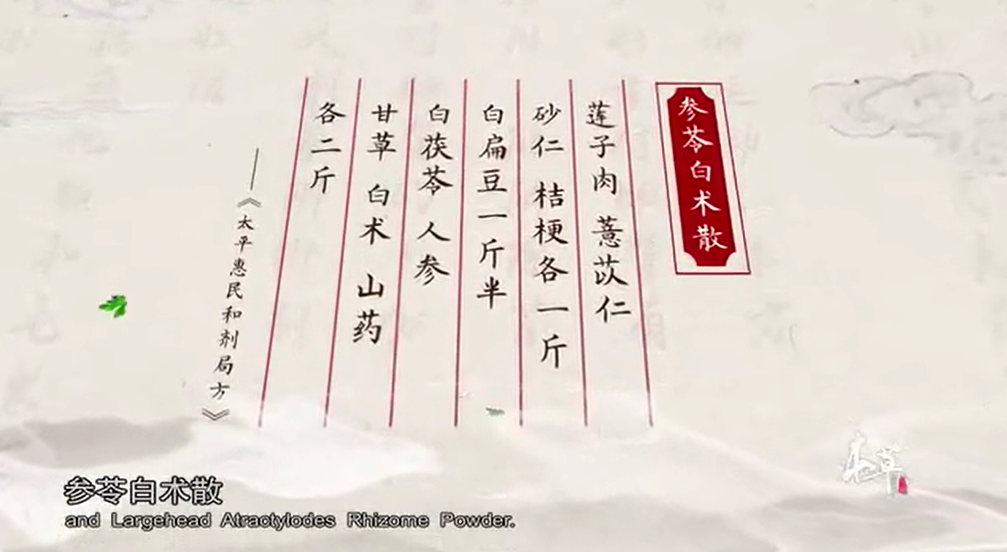 参苓白术散
莲子肉 薏苡仁
砂仁 桔梗各一斤
白扁豆一斤半
白茯苓 人参
甘草 白术 山药
各二斤
——《太平惠民和剂局方》
本草
参苓白术散
and Largehead Atractylodes Rhizome Powder.